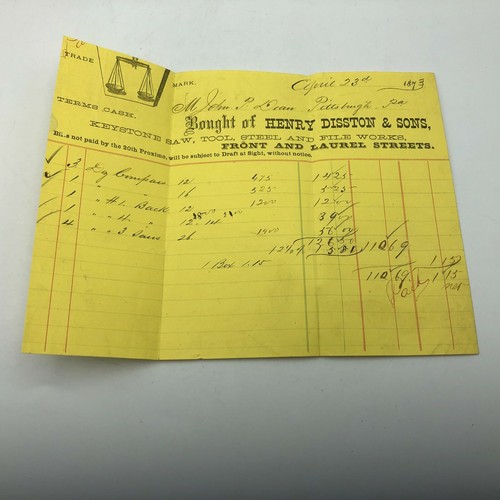 TRADE MARK.
April 23rd 1873
TERMS CASH.
M John P. Dean Pittsburgh Pa
Bought of HENRY DISSTON & SONS,
KEYSTONE SAW, TOOL, STEEL AND FILE WORKS,
FRONT AND LAUREL STREETS.
Bills not paid by the 30th Proximo, will be subject to Draft at Sight, without notice.
3 Compass 12 475 1425
1 " " 16 525 5 25
1 " #1 Back 12 1200 12 00
" " 4 " 12 39 00
4 " " 3 Saw 26 1400 56 00
126 50
110 69
1 Box 1.15
110 69 1 15